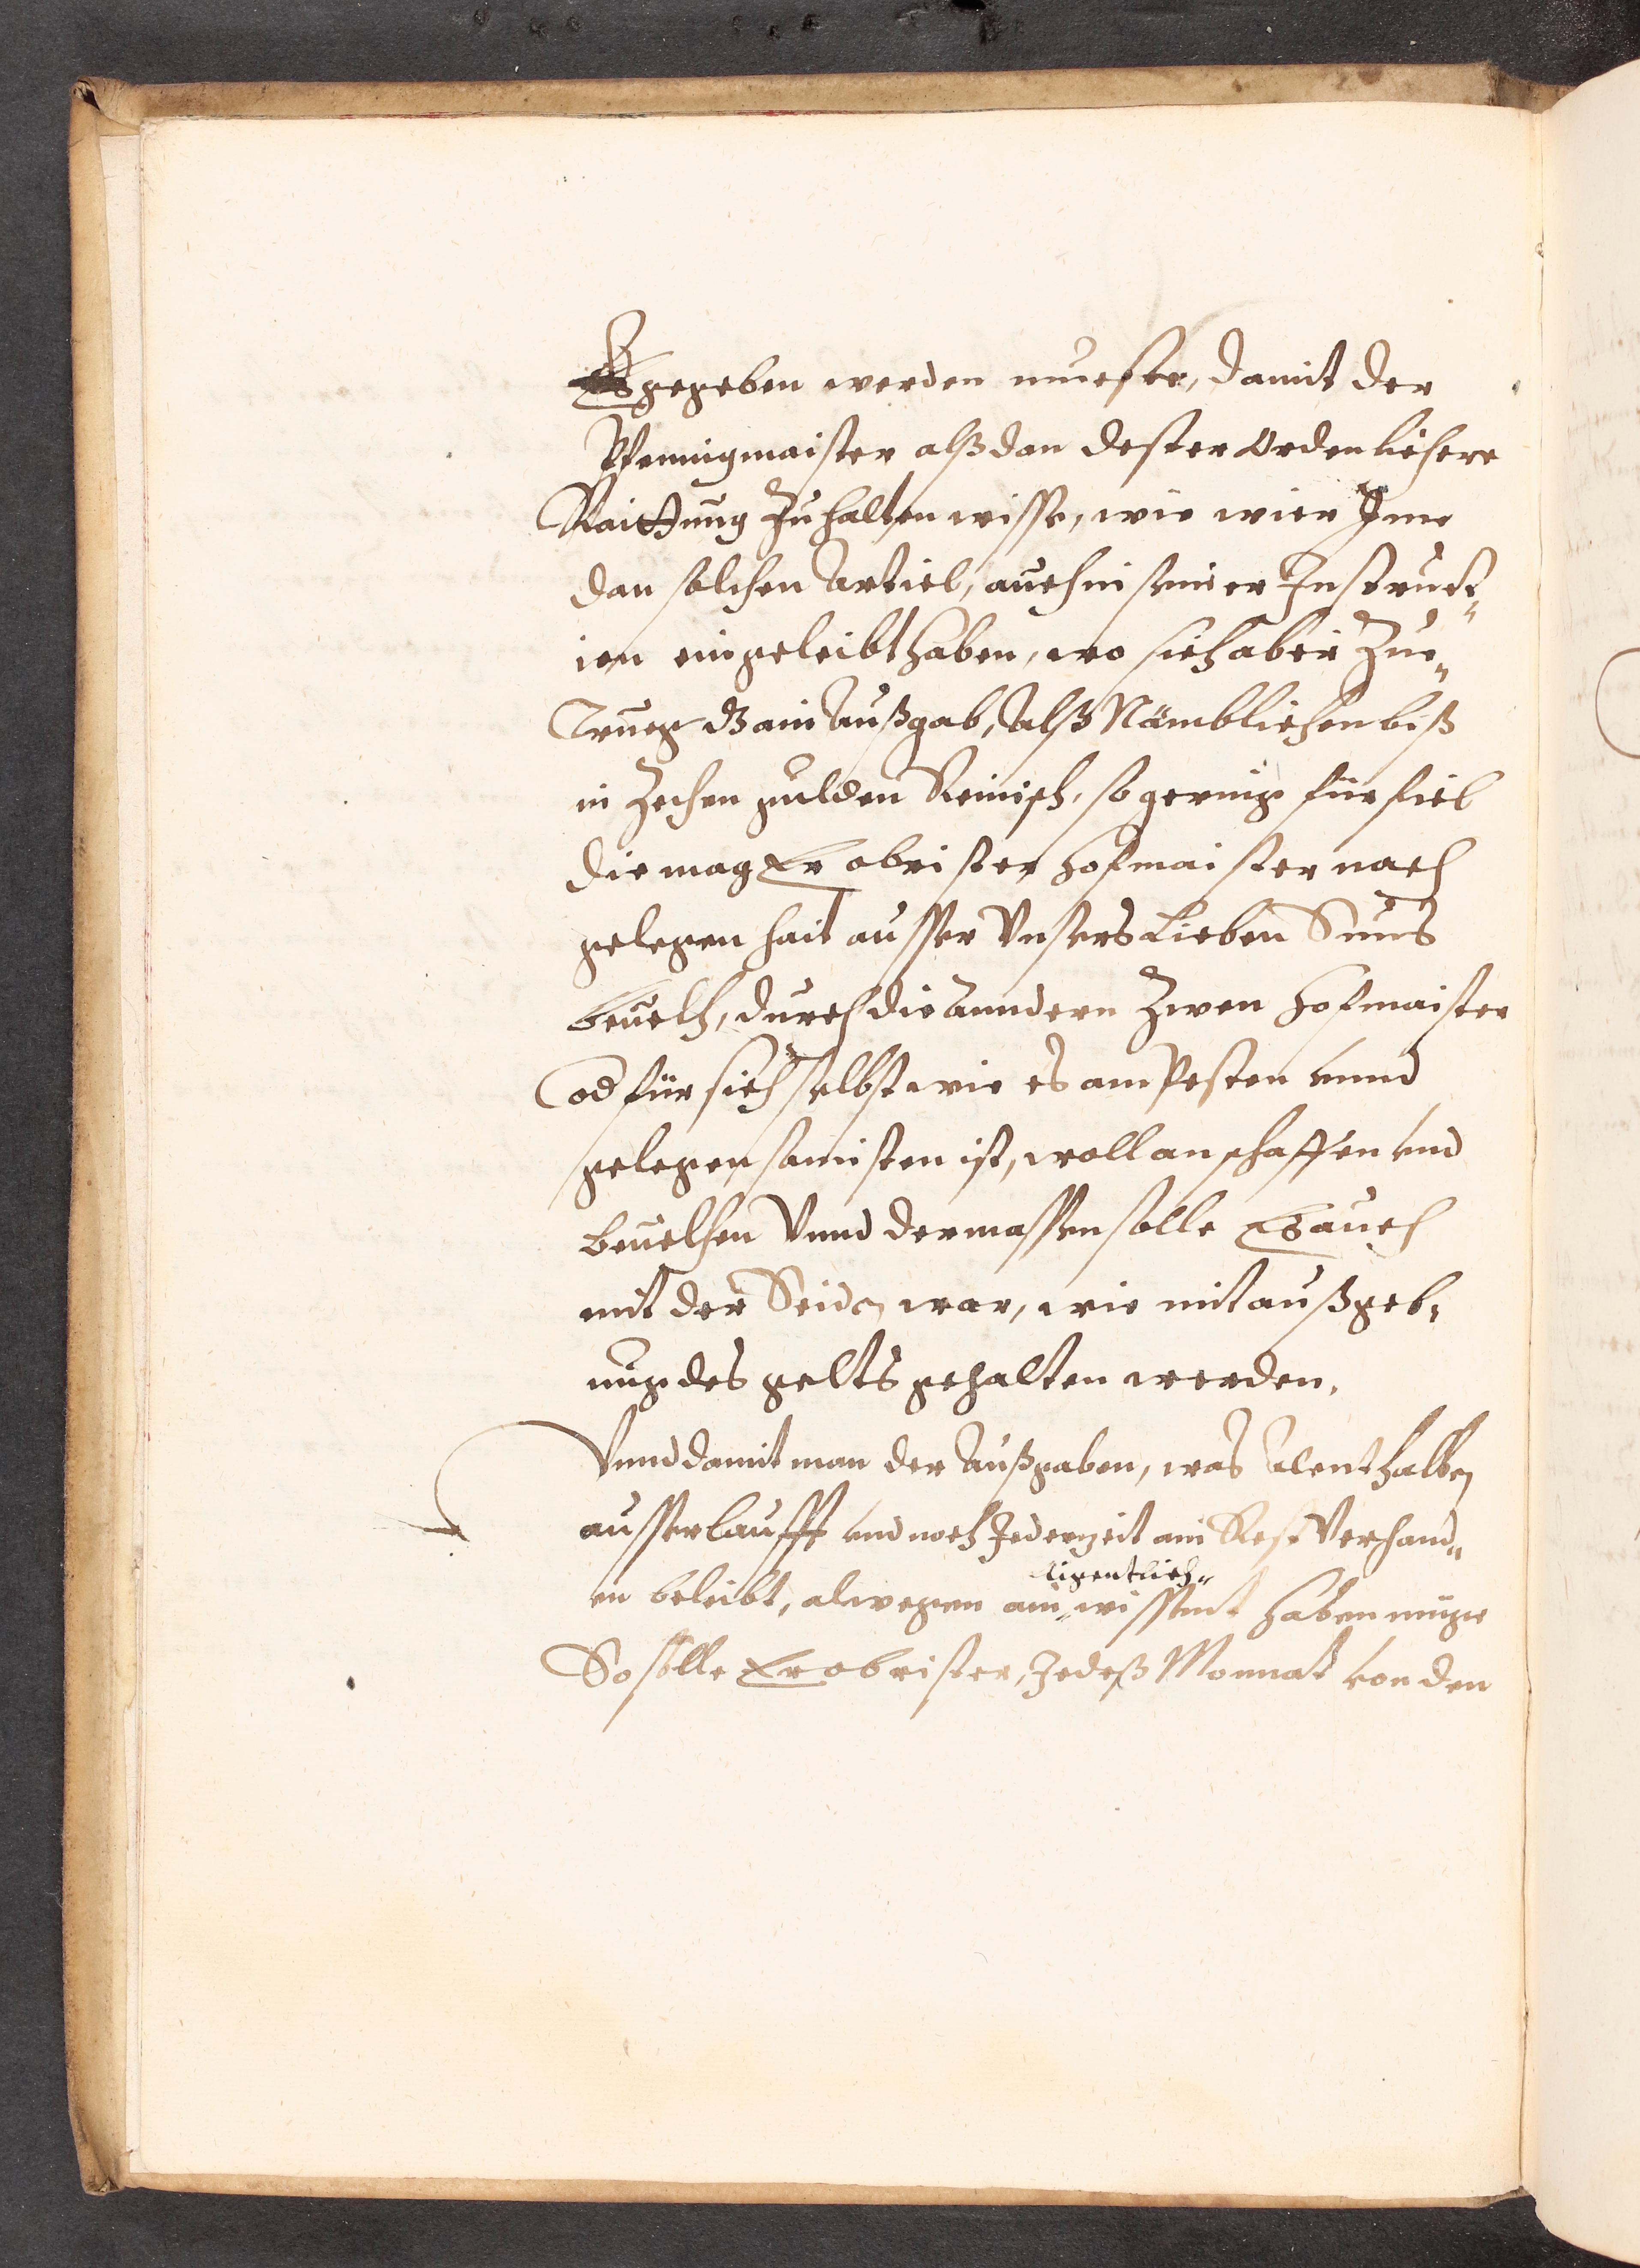 Es gegeben werden mueste, damit der
Pfennigmaister alßdan dester ordenlichere
Raittung zuhalten wisse, wie wier Ime
dan solchen Articl, auch in seiner Instruct„
ion eingeleibt haben, wo sich aber zue„
Trueg dz ain Außgab, Alß Nämblichen biß
in Zechen gulden Reinisch, so gering fürfiel
die mag Er obrister hofmaister nach
gelegenhait ausser Vnsers Lieben Suns
beuelh, durch die anndern Zwen hofmaister
od für sich selbst wie es am Pesten vnnd
gelegensamisten ist, woll anschaffen vnd
beuelhen Vnnd dermassen solle Es auch
mit der Seiden war, wie mit außgeb„
ung des gelts gehalten werden.
Vnnd damit man der Außgaben, was Alenthalben
ausserlaufft vnd noch Jederzeit ain Rest Verhand„
en beleibt, alwegen ain aigentlich„ wissent haben müge
So solle Er obrister, Jedeß Monnat von den